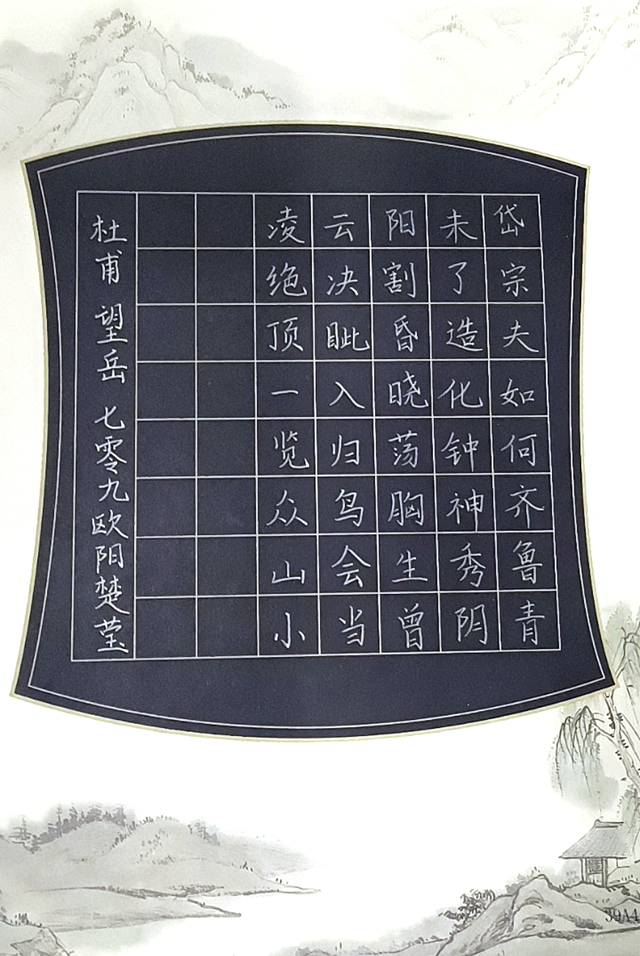 岱宗夫如何齐鲁青
未了造化钟神秀阴
阳割昏晓荡胸生曾
云决眦入归鸟会当
凌绝顶一览众山小
杜甫 望岳 七零九欧阳楚莹
39A4